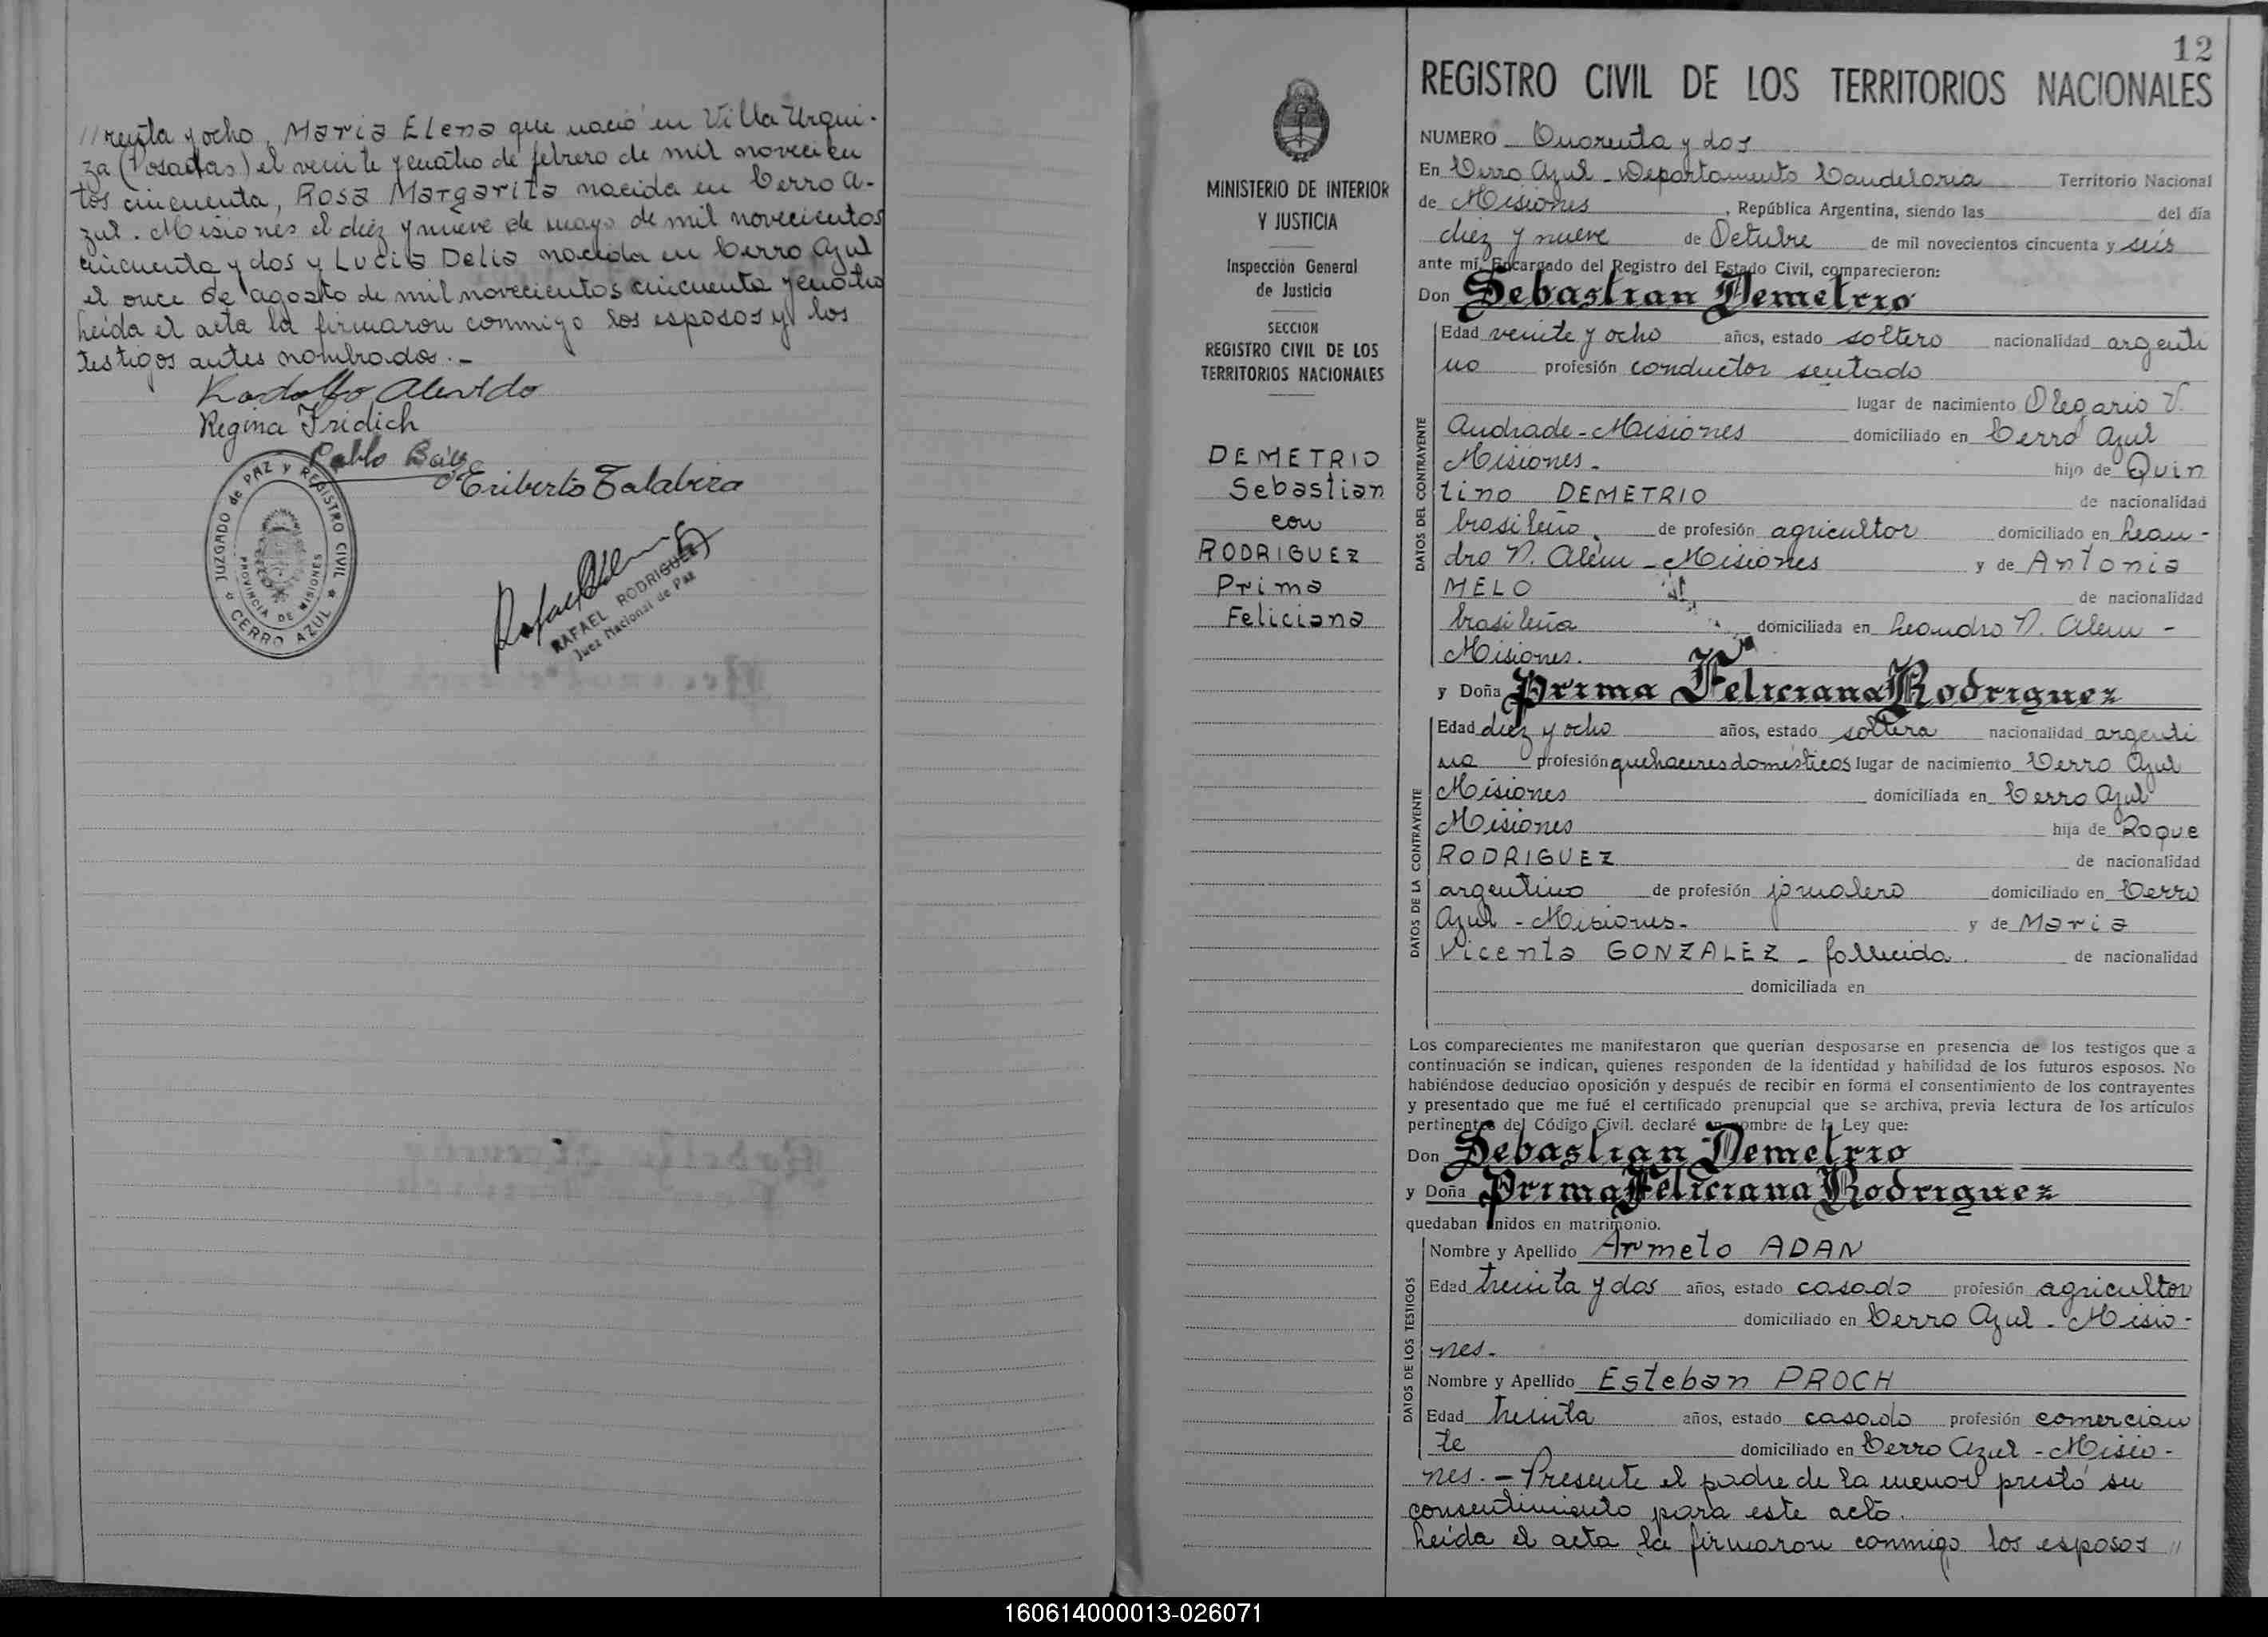 //renta y ocho, Maria Elena que nació en Villa Urqui-
za (Posadas) el veinte y cuatro de febrero de mil novecien
tos cincuenta, Rosa Margarita nacida en Cerro A-
zul. Misiones el diez y nueve de mayo de mil novecientos
cincuenta y dos y Lucia Delia nacida en Cerro Azul
el once de agosto de mil novecientos cincuenta y cuatro
Leída el acta la firmaron conmigo los esposos y los
testigos antes nombrados.-
Rodolfo
Regina Fridich
Pablo
Eriberto Talabera
JUZGADO de PAZ y REGISTRO CIVIL
PROVINCIA DE MISIONES
CERRO AZUL
RAFAEL RODRIGUEZ
Juez Nacional de Paz
MINISTERIO DE INTERIOR
Y JUSTICIA
Inspección General
de Justicia
SECCION
REGISTRO CIVIL DE LOS
TERRITORIOS NACIONALES
DEMETRIO
Sebastian
con
RODRIGUEZ
Prima
Feliciana
12
REGISTRO CIVIL DE LOS TERRITORIOS NACIONALES
NUMERO Cuarenta y dos
En Cerro Azul - Departamento Candelaria Territorio Nacional
de Misiones, República Argentina, siendo las del día
diez y nueve de Octubre de mil novecientos cincuenta y seis
ante mí, Encargado del Registro del Estado Civil, comparecieron:
Don Sebastian Demetrio
DATOS DEL CONTRAYENTE
Edad veinte y ocho años, estado soltero nacionalidad argenti
no profesión conductor sentado
lugar de nacimiento Olegario V.
Andrade - Misiones domiciliado en Cerro Azul
Misiones. hijo de Quin
tino DEMETRIO de nacionalidad
brasileño de profesión agricultor domiciliado en Lean-
dro N. Alem - Misiones y de Antonia
MELO de nacionalidad
brasileña domiciliada en Leandro N. Alem -
Misiones.
y Doña Prima Feliciana Rodriguez
DATOS DE LA CONTRAYENTE
Edad diez y ocho años, estado soltera nacionalidad argenti
na profesión quehaceres domésticos lugar de nacimiento Cerro Azul
Misiones domiciliada en Cerro Azul
Misiones hija de Roque
RODRIGUEZ de nacionalidad
argentino de profesión jornalero domiciliado en Cerro
Azul - Misiones. y de Maria
Vicenta GONZALEZ - fallecida. de nacionalidad
domiciliada en
Los comparecientes me manifestaron que querían desposarse en presencia de los testigos que a
continuación se indican, quienes responden de la identidad y habilidad de los futuros esposos. No
habiéndose deducido oposición y después de recibir en forma el consentimiento de los contrayentes
y presentado que me fué el certificado prenupcial que se archiva, previa lectura de los artículos
pertinentes del Código Civil. declaré en nombre de la Ley que:
Don Sebastian Demetrio
y Doña Prima Feliciana Rodriguez
quedaban unidos en matrimonio.
DATOS DE LOS TESTIGOS
Nombre y Apellido Armeto ADAN
Edad treinta y dos años, estado casado profesión agricultor
domiciliado en Cerro Azul - Misio-
nes.
Nombre y Apellido Esteban PROCH
Edad treinta años, estado casado profesión comercian
te domiciliado en Cerro Azul - Misio-
nes. - Presente el padre de la menor prestó su
consentimiento para este acto.
Leída el acta la firmaron conmigo los esposos //
160614000013-026071